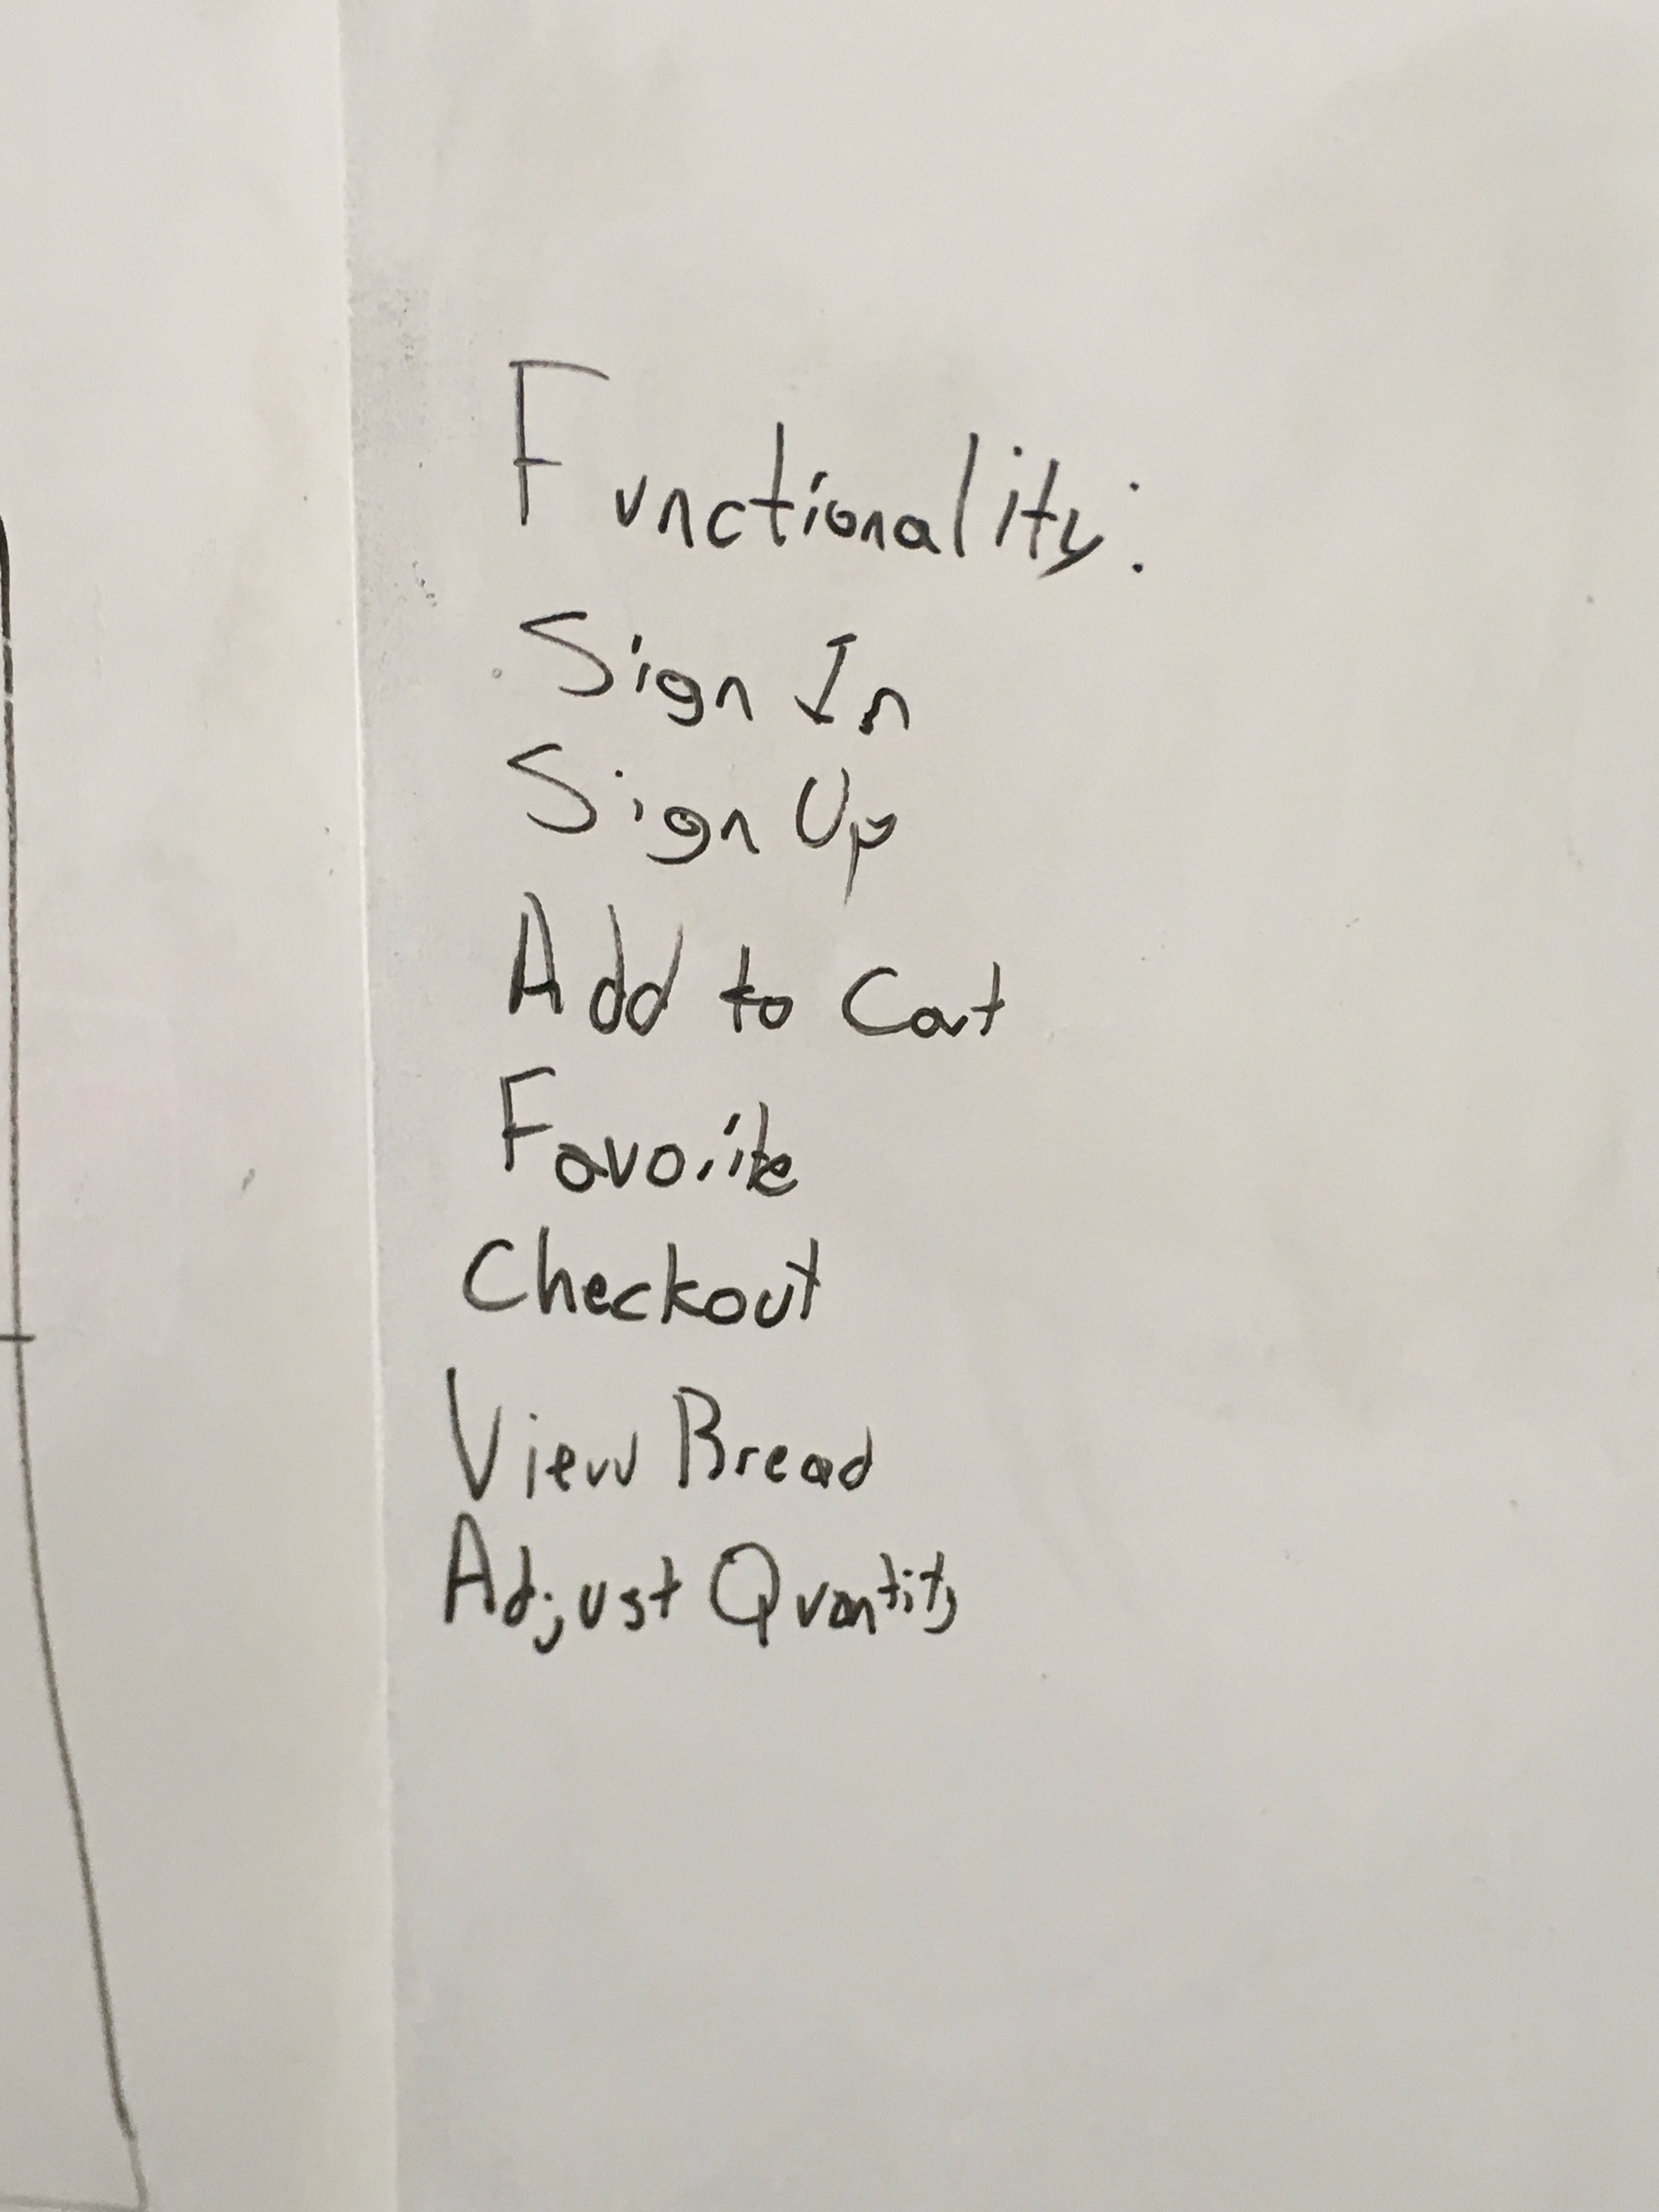 Functionality:
Sign In
Sign Up
Add to Cart
Favorite
Checkout
View Bread
Adjust Quantity